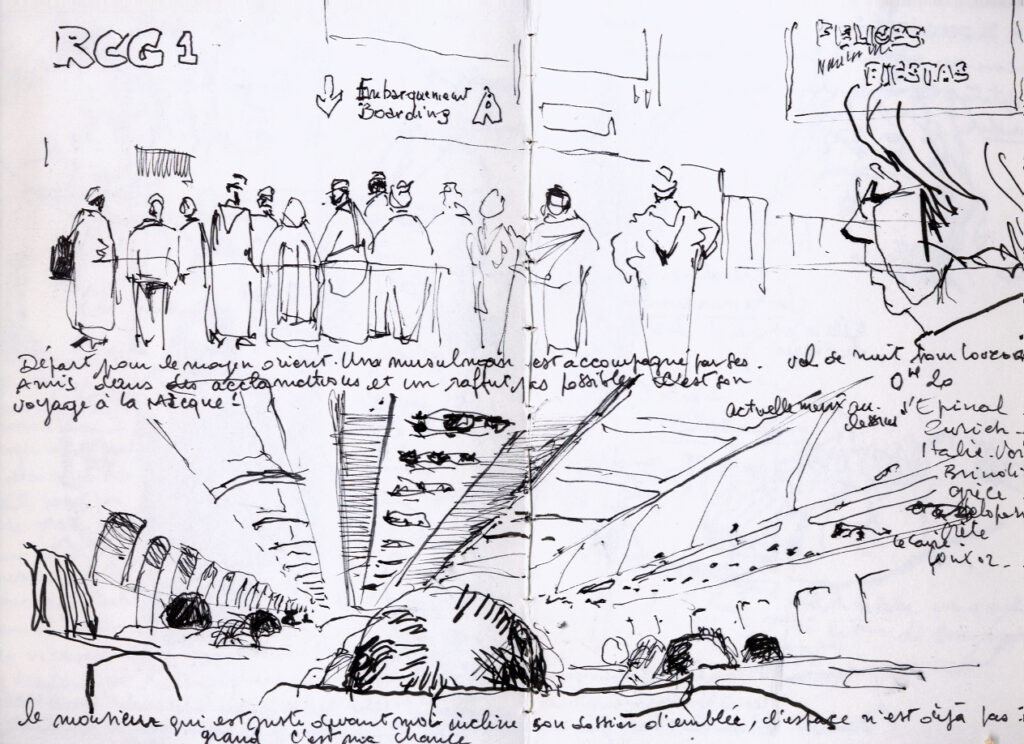 RCG 1
FELICES
FIESTAS
Embarquement
Boarding A
Départ pour le moyen orient. Un musulman est accompagné par ses
amis dans des acclamations et un raffut pas possible. C'est son
voyage à la Mecque!
vol de nuit pour
actuellement au-
dessus
d'Epinal
Zurich
Italie
Brindisi
grèce
crète
le caire
le monsieur qui est juste devant moi incline son dossier d'emblée, l'espace n'est déjà pas
grand c'est ma chance